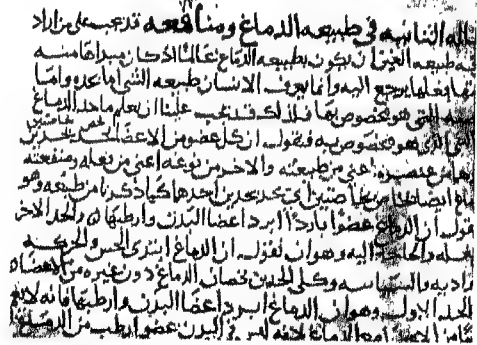 الثانيه في طبيعه الدماغ ومنافعه قد يجب على من اراد
طبيعه العين ان يكون بطبيعه الدماغ عالما اذ كان مبداها منه
يرجع اليه وانما يعرف الانسان طبيعه الشي اما بحده واما
التي هو مخصوص بها فلذلك قد يجب علينا ان نعلم ما حد الدماغ
الذي هو مخصوص به فنقول ان كل عضو من الاعضا يحد بحدين
اعني من طبيعته والاخر من نوعه اعني من فعله ومنفعته
ايضا من خاصتين اي تحديدين احدهما كما ذكرنا من طبعه وهو
نقول ان الدماغ عضو بارد ابرد اعضا البدن وارطبها والحد الاخر
فعله والحاجه اليه وهو ان نقول ان الدماغ ابتدى الحس والحركه
الاراديه والسياسه وكلى الحدين يخصان الدماغ دون غيره من الاعضاء
الحد الاول وهو ان الدماغ ابرد اعضا البدن وارطبها فانه لا
الدماغ لانه ليس في البدن عضو ارطب من الدماغ